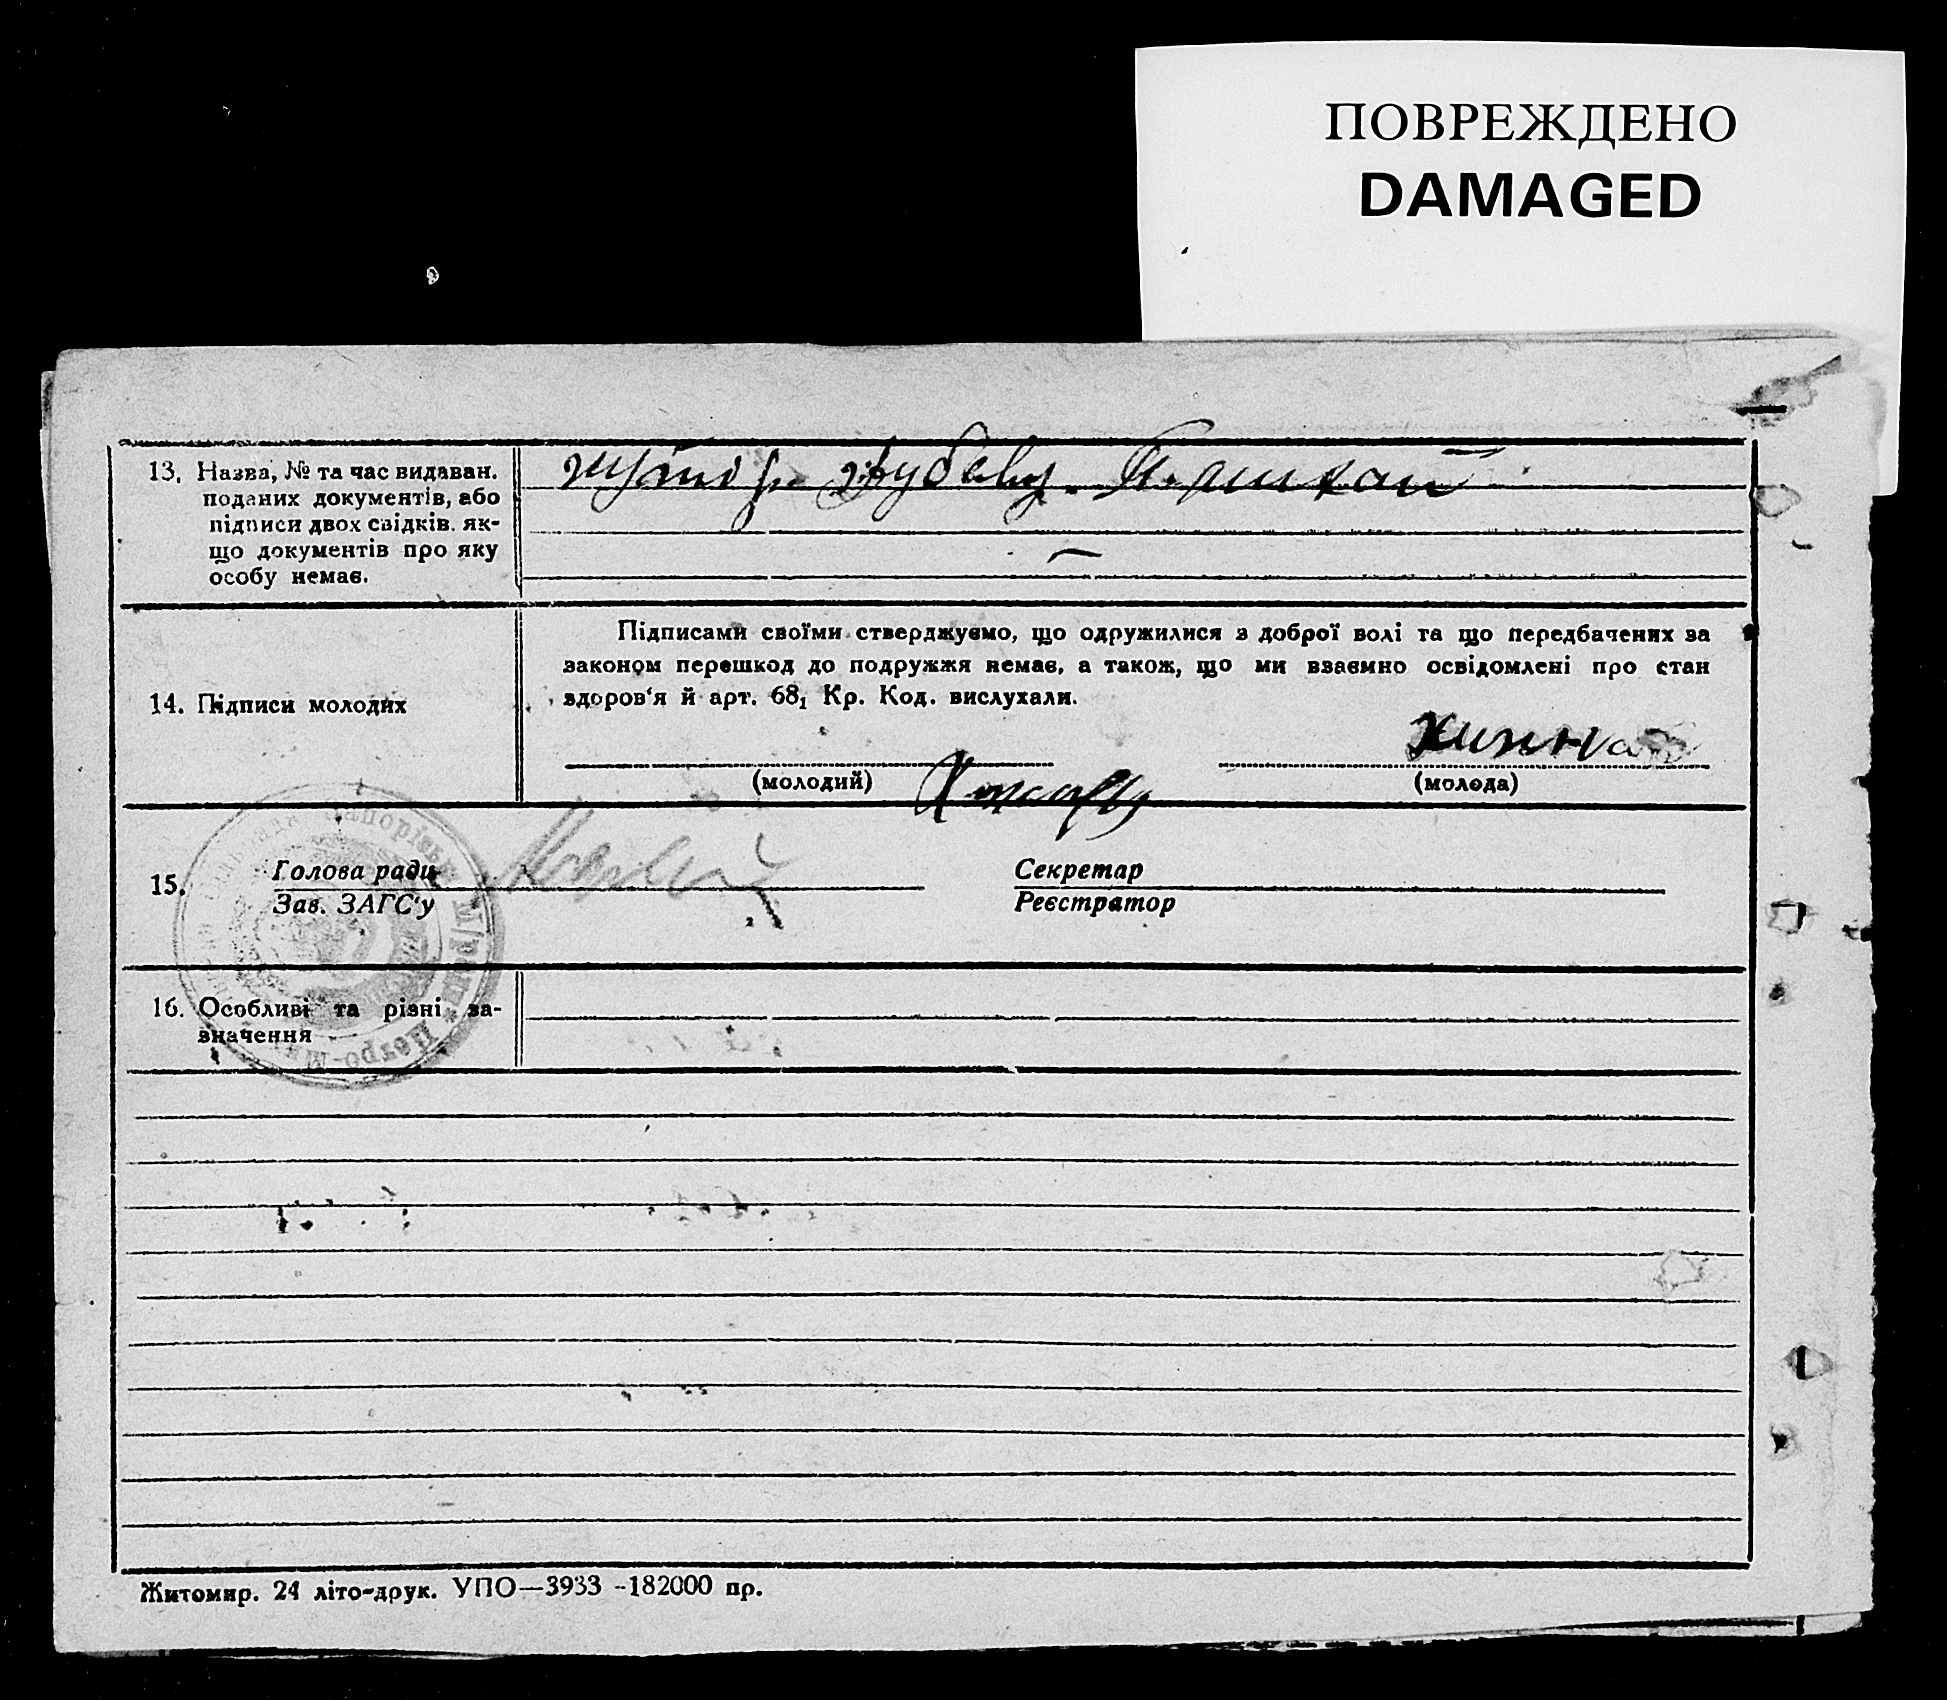 ПОВРЕЖДЕНО
DAMAGED
13. Назва, № та час видаван.
поданих документів, або
підписи двох свідків. як-
що документів про яку
особу немає.
Підписами своїми стверджуємо, що одружилися з доброї волі та що передбачених за
законом перешкод до подружжя немає, а також, що ми взаємно освідомлені про стан
здоров‘я й арт. 68₁ Кр. Код. вислухали.
14. Підписи молодих
(молодий)
(молода)
15.
Голова ради
Зав. ЗАГС‘у
Секретар
Реєстратор
16. Особливі та різні за-
значення
Житомир. 24 літо-друк. УПО—3933 -182000 пр.